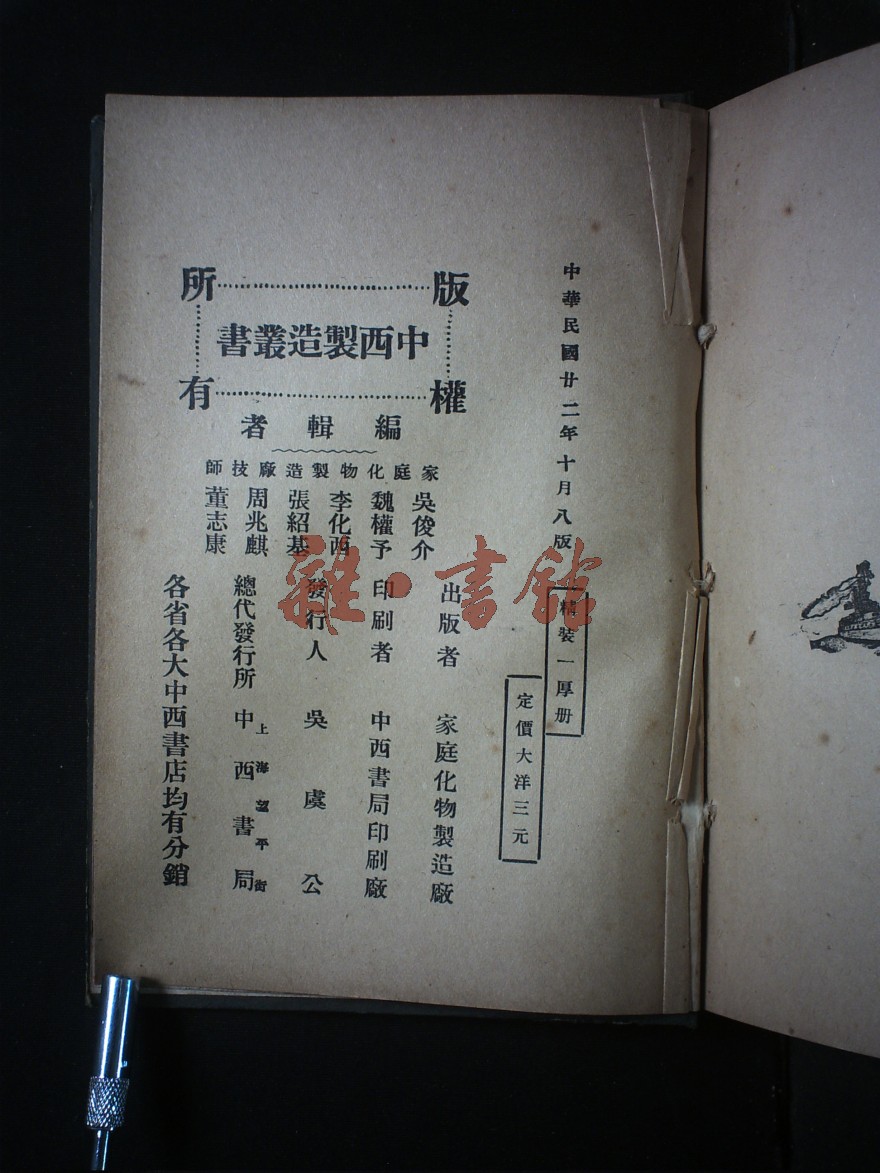 中華民國廿二年十月八版
精裝一厚册
定價大洋三元
版權所有
中西製造叢書
編輯者
家庭化物製造廠技師
吳俊介
魏權予
李化西
張紹基
周兆麒
董志康
出版者 家庭化物製造廠
印刷者 中西書局印刷廠
發行人 吳虞公
總代發行所 上海望平街 中西書局
各省各大中西書店均有分銷
雜·書館